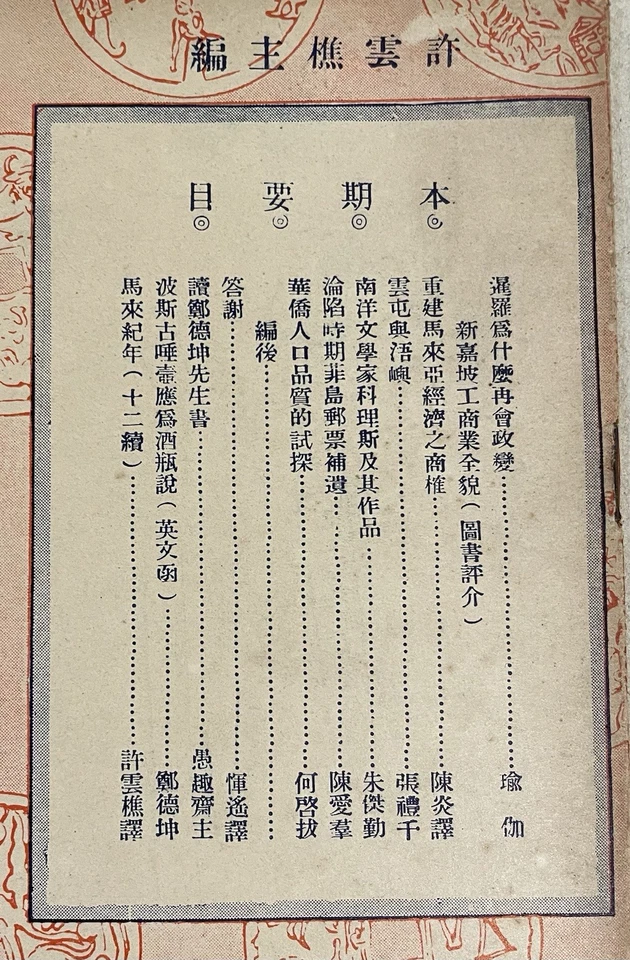 許雲樵主編
本期要目
暹羅爲什麼再會政變……瑜伽
新嘉坡工商業全貌（圖書評介）
重建馬來亞經濟之商榷……陳炎譯
雲屯與浯嶼……張禮千
南洋文學家科理斯及其作品……朱傑勤
淪陷時期菲島郵票補遺……陳愛羣
華僑人口品質的試探……何啓拔
編後……
答謝……惲遙譯
讀鄭德坤先生書……愚趣齋主
波斯古唾壺應爲酒瓶說（英文函）……鄭德坤
馬來紀年（十二續）……許雲樵譯